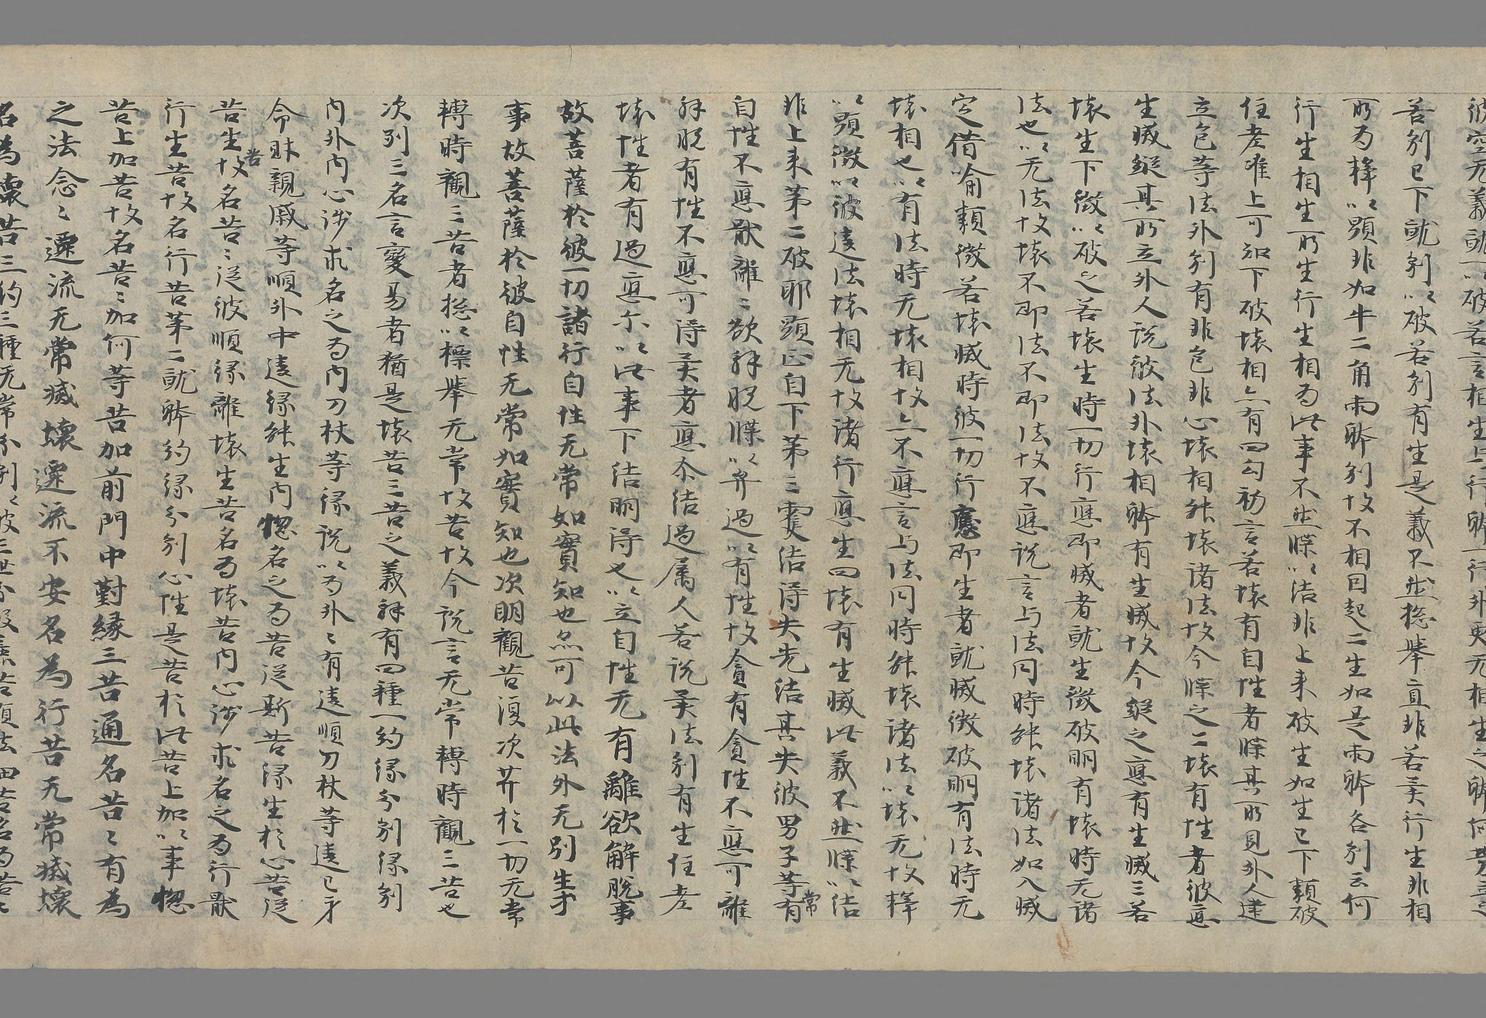 彼空无義就以破若言相生与行躰一行外更无相生之躰何
若別已下就別以破若別有生是義不然揔舉直非若義行生非相
所為釋以顯非如牛二角兩躰別故不相因起二生如是兩躰各別云何
行生相生所生行生相為此事不然牒以結非上来破生如生已下類破
住老唯上可知下破壞相亦有四勾初言若壞有自性者牒其所見外人建
立色等法外別有非色非心壞相能壞諸法故今牒之二壞有性者彼應
生滅縱其所立外人說彼法外壞相躰有生滅故今縱之應有生滅三若
壞生下徵以破之若壞生時一切行應即滅者就生徵破明有壞時无諸
法也以无法故壞不即法不即法故不應說言与法同時能壞諸法如入滅
定借喻類徵若壞滅時彼一切行應即生者就滅徵破明有法時无
壞相也以有法時无壞相故亦不應言与法同時能壞諸法以壞无故釋
以顯徵以彼遠法壞相无故諸行應生四壞有生滅此義不然牒以結
非上来第二破耶顯正自下第三雙結得失先結其失彼男子等有常
自性不應厭離離欲解脫牒以第過以有性故貪有貪性不應可離
解脫有性不應可得義者應本結過屬人若說義法別有生住老
壞性者有過應尒以此事下結明得也以立自性无有離欲解脫事
故菩薩於彼一切諸行自性无常如實知也然可以此法外无別生等
事故菩薩於彼自性无常如實知也次明觀苦復次菩薩於一切无常
轉時觀三苦者揔以標舉无常故苦故今說言无常轉時觀三苦也
次列三名言變易者猶是壞苦三苦之義解有四種一約緣分別緣別
內外內心涉求名之為內刀杖等緣說以為外外有違順刀杖等違已身
命財親戚等順外中違緣能生內惱名之為苦從斯苦緣生於心苦從
苦生故名苦苦從彼順緣離壞生苦名為壞苦內心涉求名之為行厭
行生苦故名行苦第二就躰約緣分別心性是苦於此苦上加以事惱
苦上加苦故名苦苦加何等苦加前門中對緣三苦通名苦苦有為
之法念念遷流无常滅壞遷流不安名為行苦无常滅壞
名為壞苦三約三種无常分別